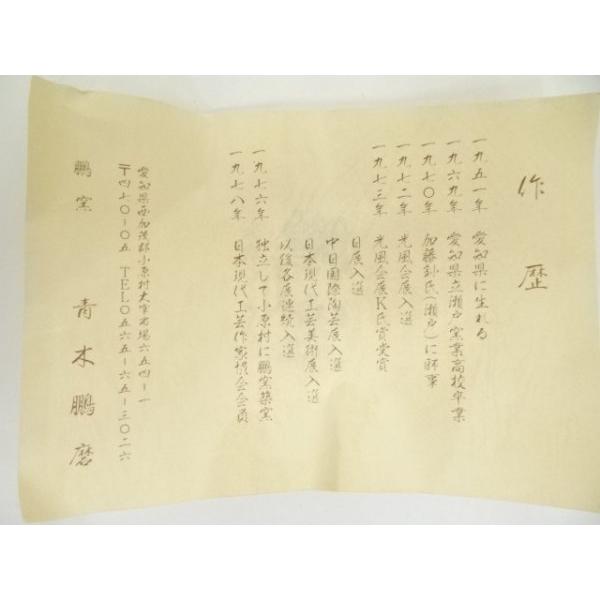 作歴
一九五一年 愛知県に生れる
一九六九年 愛知県立瀬戸窯業高校卒業
一九七〇年 加藤釥氏(瀬戸)に師事
一九七二年 光風会展入選
一九七三年 光風会展K氏賞受賞
日展入選
中日国際陶芸展入選
日本現代工芸美術展入選
以後各展連続入選
一九七六年 独立して小原村に鵬窯築窯
一九七八年 日本現代工芸作家協会会員
愛知県西加茂郡小原村大字
〒四七〇-〇五 TEL〇五六五-六五-三〇二六
鵬窯 青木鵬磨